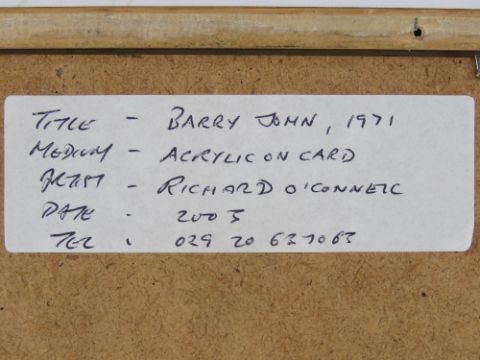 TITLE - BARRY JOHN, 1971
MEDIUM - ACRYLIC ON CARD
ARTIST - RICHARD O'CONNELL
DATE . 2003
TEL . 029 20 637063